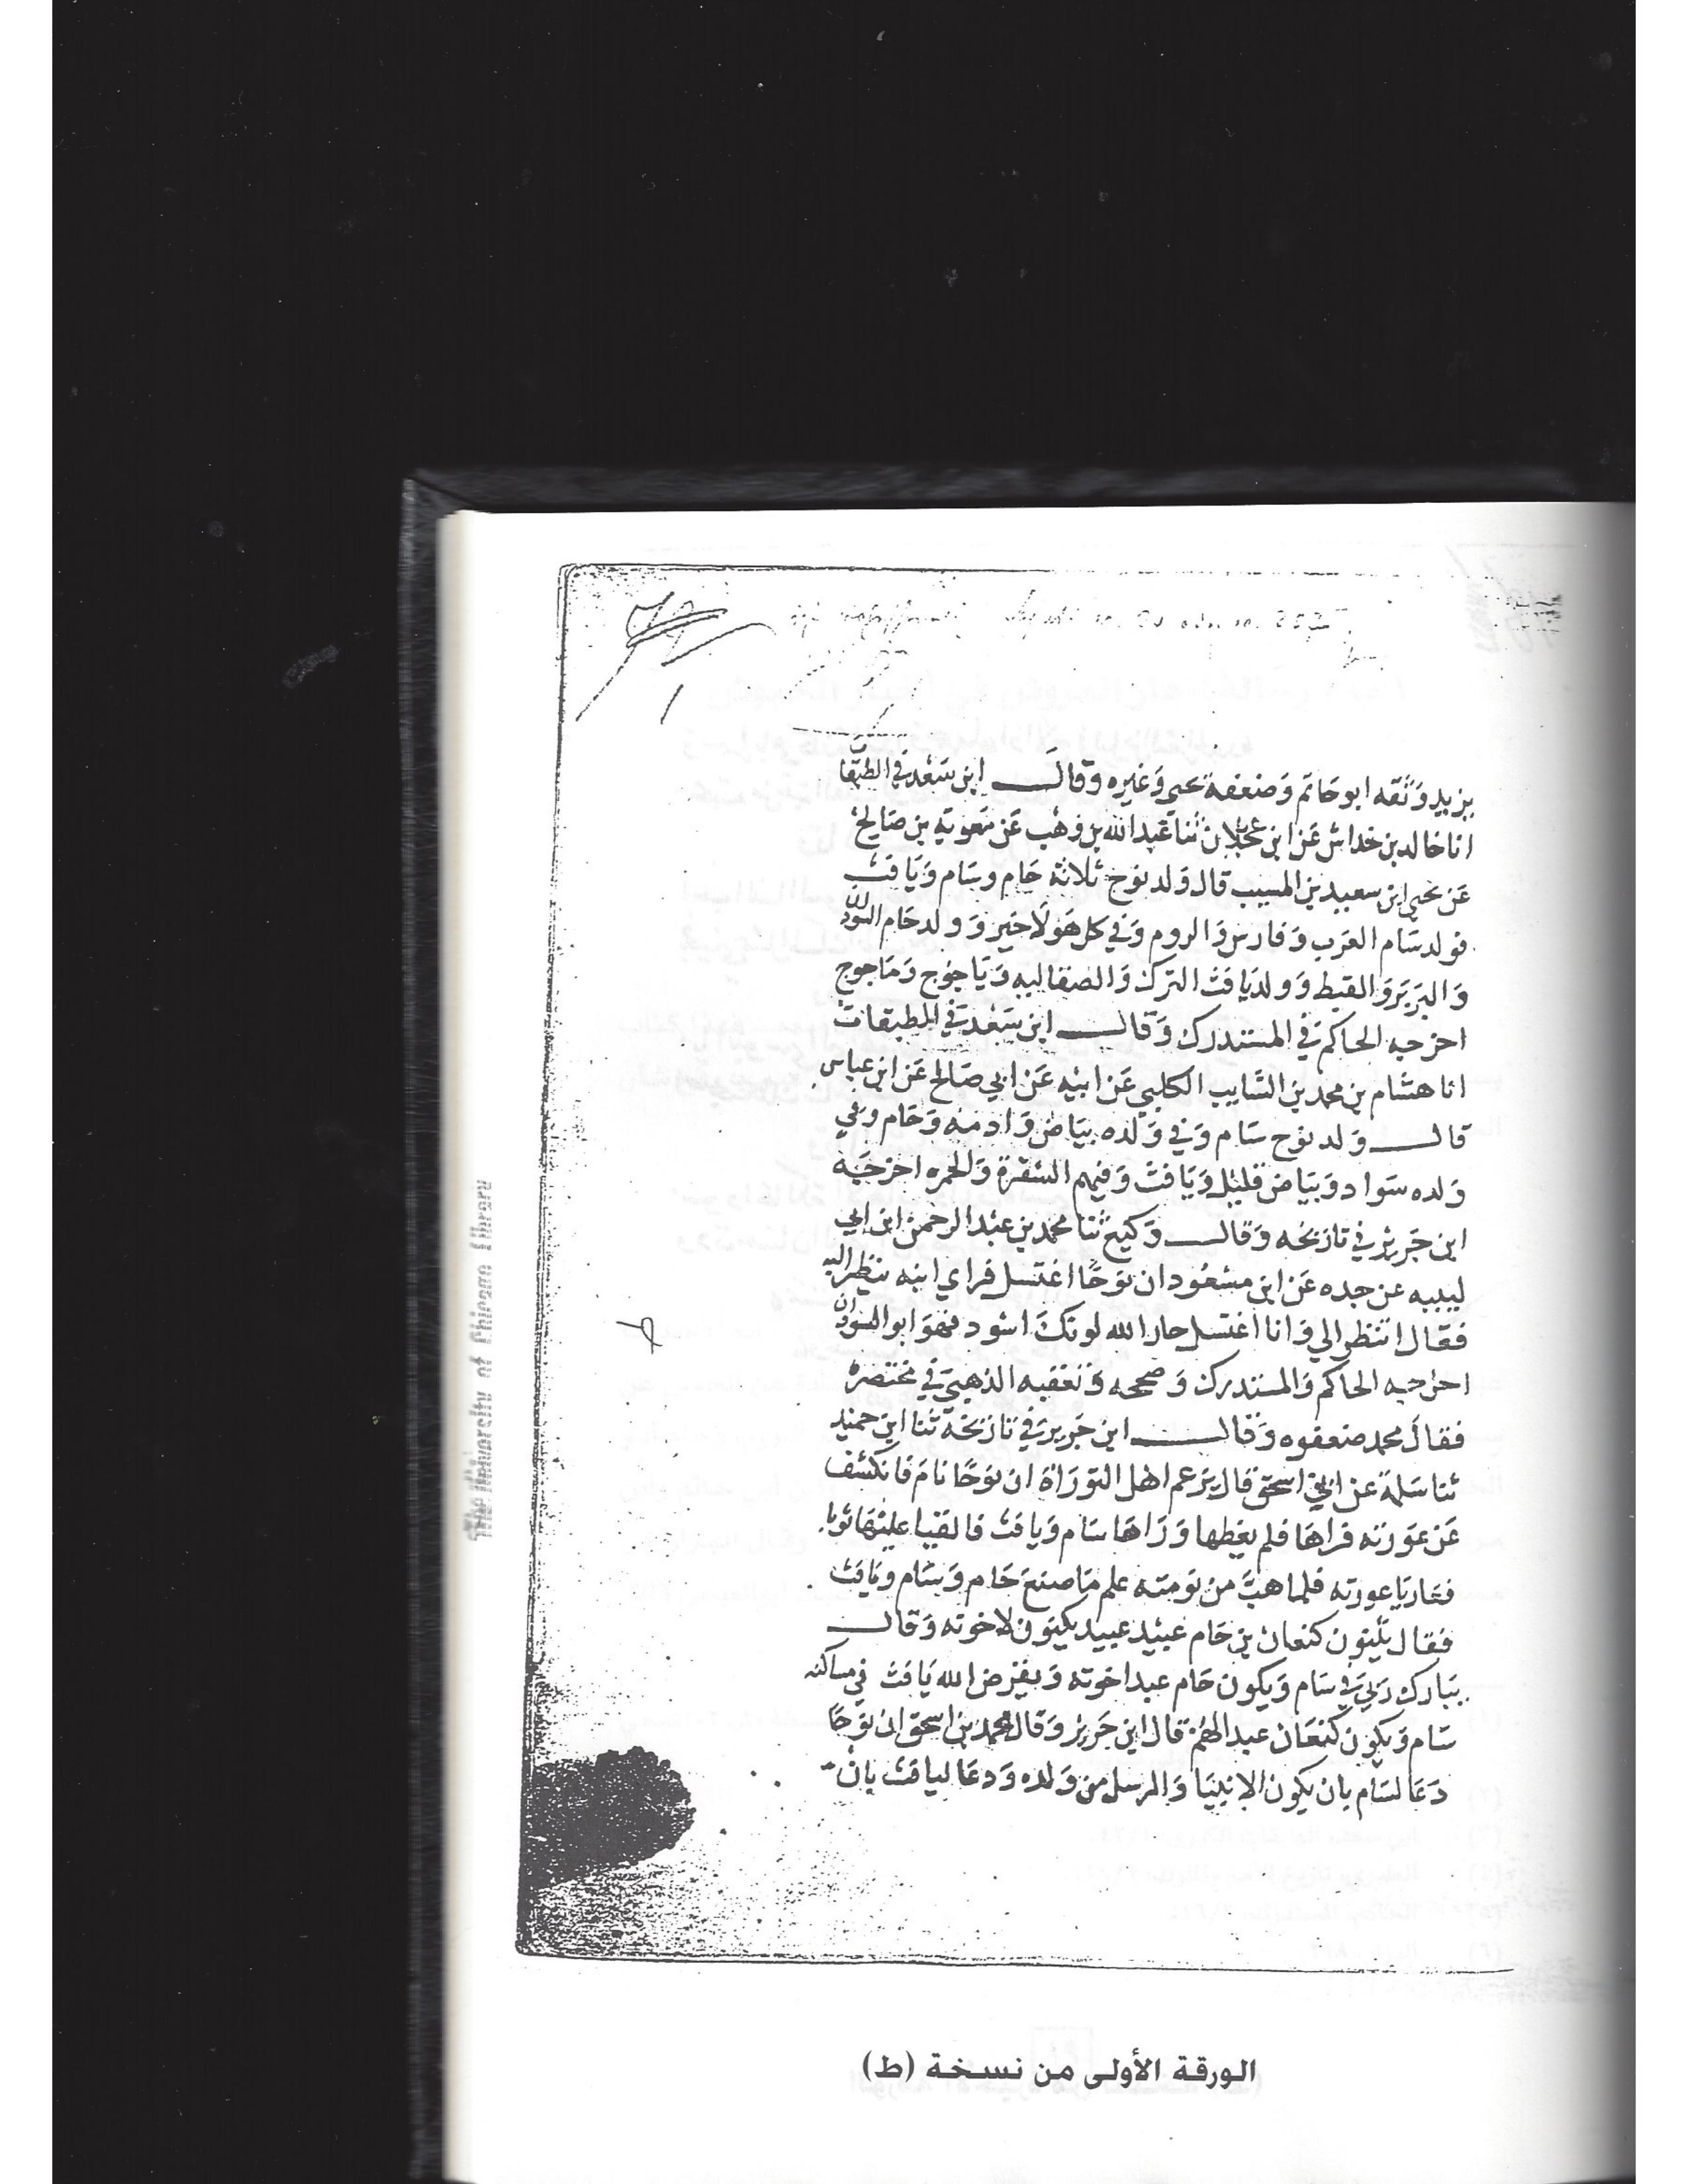 يزيد وَثقه ابو حَاتم وَضعفه يحيى وَغيره وقالــــ ابن سَعْد في الطبقا
انا خالد بن خداش عَن ابن عجلان ثنا عَبد الله بن وَهْب عَن مَعوية بن صَالح
عَن يحيى ابن سعيد بن المسيب قال وَلد نوح ثلاثة حَام وسَام وَيَافث
فولد سَام العَرَب وَفارس وَالروم وَفي كل هَولَا خير وَ ولد حَام السودان
وَالبَربَر وَالقبط وَ ولد يَافث الترك وَالصقالبه وَيَاجوج وَمَاجوج
اخرجه الحاكم في المستدرك وَقالــــ ابن سَعْد في الطبقات
انا هشَام بن محمد بن السَّايب الكلبي عَن ابيْه عَن ابي صَالح عَن ابن عباس
قالــــ وَلد نوح سَام وَفي وَلده بيَاض وَادمه وَحَام وَفي
وَلده سَواد وَبيَاض قليْل وَيَافث وَفيهم الشقرة وَالحمره اخرجَه
ابن جَرير في تاريخه وَقالــــ وَكيع ثنا محمد بن عَبْد الرحمن ابن ابي
لبيبه عن جده عَن ابن مسْعُود ان نوحًا اغتسل فراي ابنه ينظر اليه
فقال اتنظر الي وَانا اغتسل حار الله لونك اسْود فهوَ ابو السودان
اخرجه الحاكم وَالمستدرك وَصححه وَتعقبه الذهبي في مختصره
فقال محمد ضعفوه وَقالــــ ابن جَرير في تاريخه ثنا ابن حميد
ثنا سَلمة عن ابن اسحق قال يزعم اهل التورَاة ان نوحًا نامَ فانكشف
عَن عوَرته فراهَا فلم يغطها وَرَاهَا سَام وَيافث فالقيا عليْها ثوبا
فوَاريَا عورته فلما هبَّ من نومته علم مَا صنعَ حَام وَسَام ويَافث
فقال يكون كنعان بن حَام عبيْد عبيد يكونون لاخوته وَقالــــ
يبَارك ربي في سَام وَيكون حَام عبد اخوته وَيقرض الله يَافث في مساكنه
سَام وَيكون كنعَان عبد الهُم قال ابن جَرير وَقال محمد بن اسحق ان نوحًا
دَعَا لسَام بان يكون الانبيَا وَالرسل من وَلده وَدعَا ليافث بان
الورقة الأولى من نسخة (ط)
The University of Chicago Library